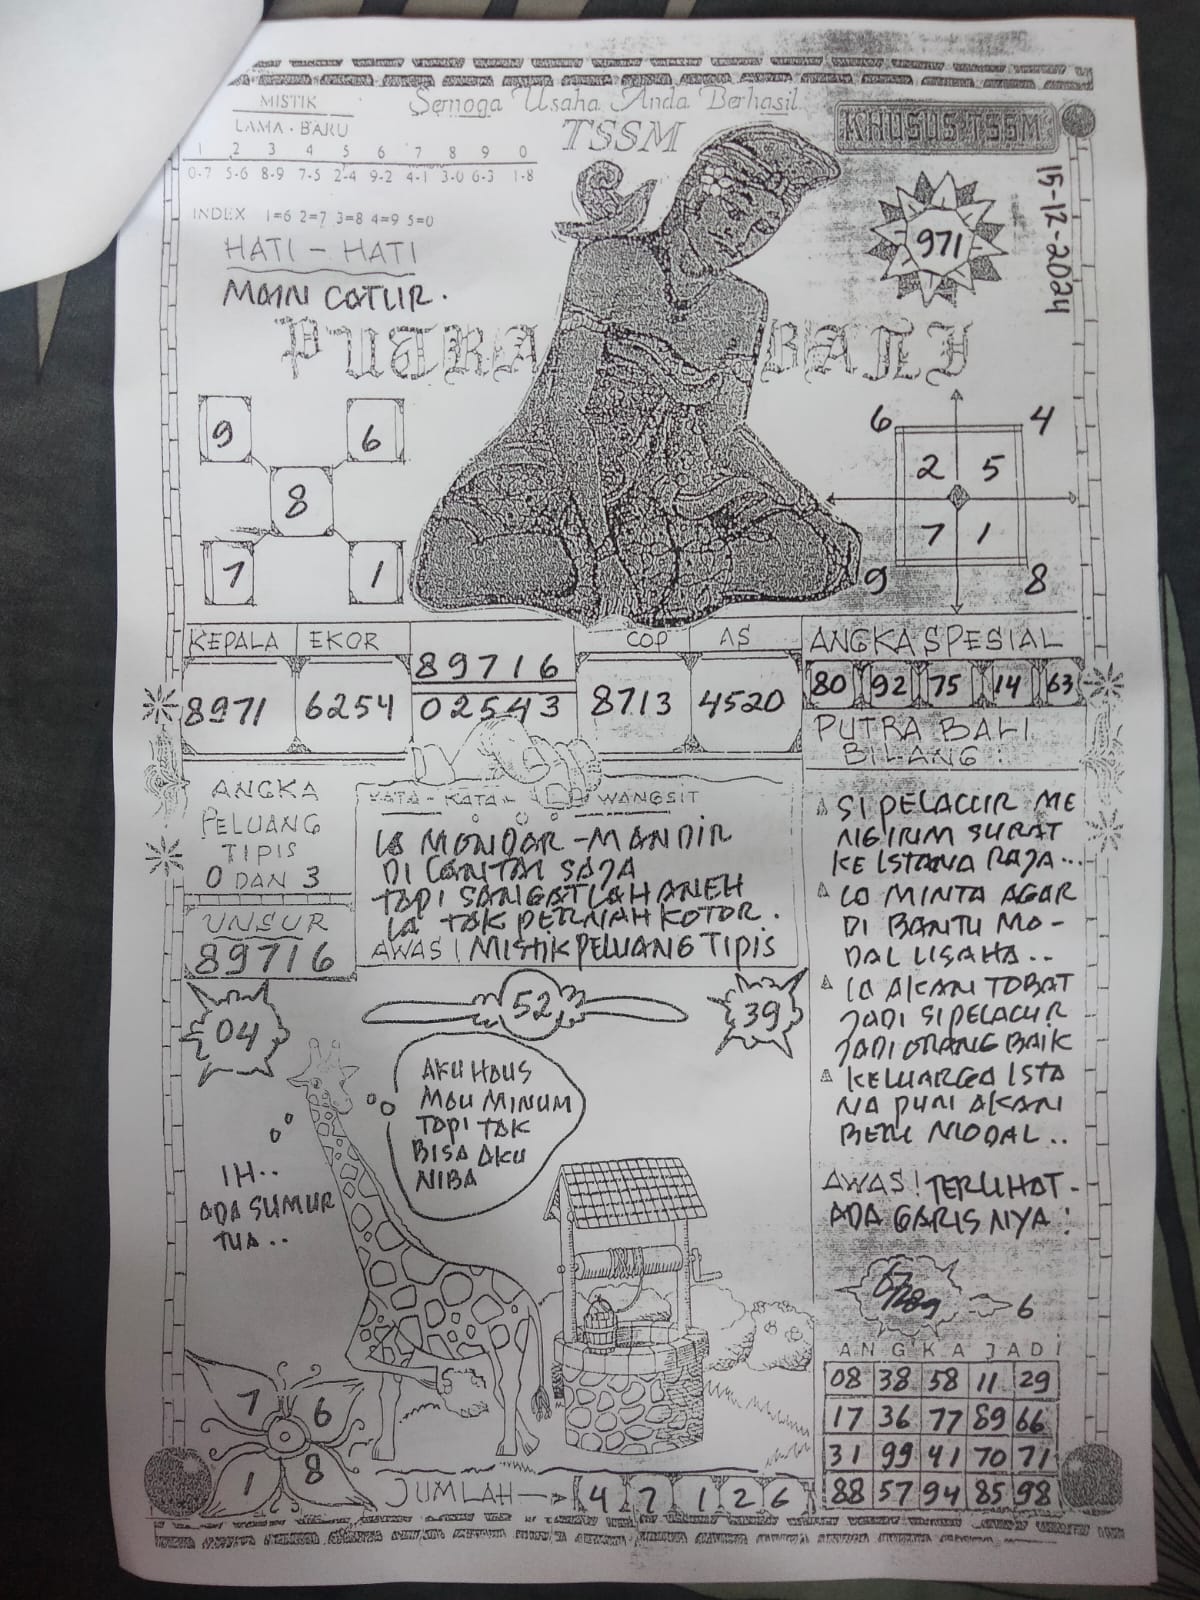 MISTIK
LAMA - BARU
1 2 3 4 5 6 7 8 9 0
0-7 5-6 8-9 7-5 2-4 9-2 4-1 3-0 6-3 1-8
INDEX 1=6 2=7 3=8 4=9 5=0
HATI - HATI
MAIN CATUR.
Semoga Usaha Anda Berhasil
TSSM
KHUSUS TSSM
15-12-2024
971
PUTRA BALI
9 6
8
7 1
6 4
2 5
7 1
9 8
KEPALA EKOR COP AS
8971 6254 89716 8713 4520
02543
ANGKA SPESIAL
80 92 75 14 63
PUTRA BALI
BILANG :
SI PELACUR ME
NGIRIM SURAT
KE ISTANA RAJA...
IA MINTA AGAR
DI BANTU MO-
DAL USAHA..
IA AKAN TOBAT
JADI SI PELACUR
JADI ORANG BAIK
KELUARGA ISTA
NA PUN AKAN
BERI MODAL..
AWAS! TERLIHAT-
ADA GARIS NYA!
6
ANGKA JADI
08 38 58 11 29
17 36 77 89 66
31 99 41 70 71
88 57 94 85 98
ANGKA
PELUANG
TIPIS
0 DAN 3
UNSUR
89716
KATA - KATA WANGSIT
IA MONDAR - MANDIR
DI LANTAI SAJA
TAPI SANGATLAH ANEH
IA TAK PERNAH KOTOR.
AWAS! MISTIK PELUANG TIPIS
04
52
39
AKU HAUS
MAU MINUM
TAPI TAK
BISA AKU
NIBA
IH..
ADA SUMUR
TUA..
7 6
1 8
JUMLAH 4 7 1 2 6